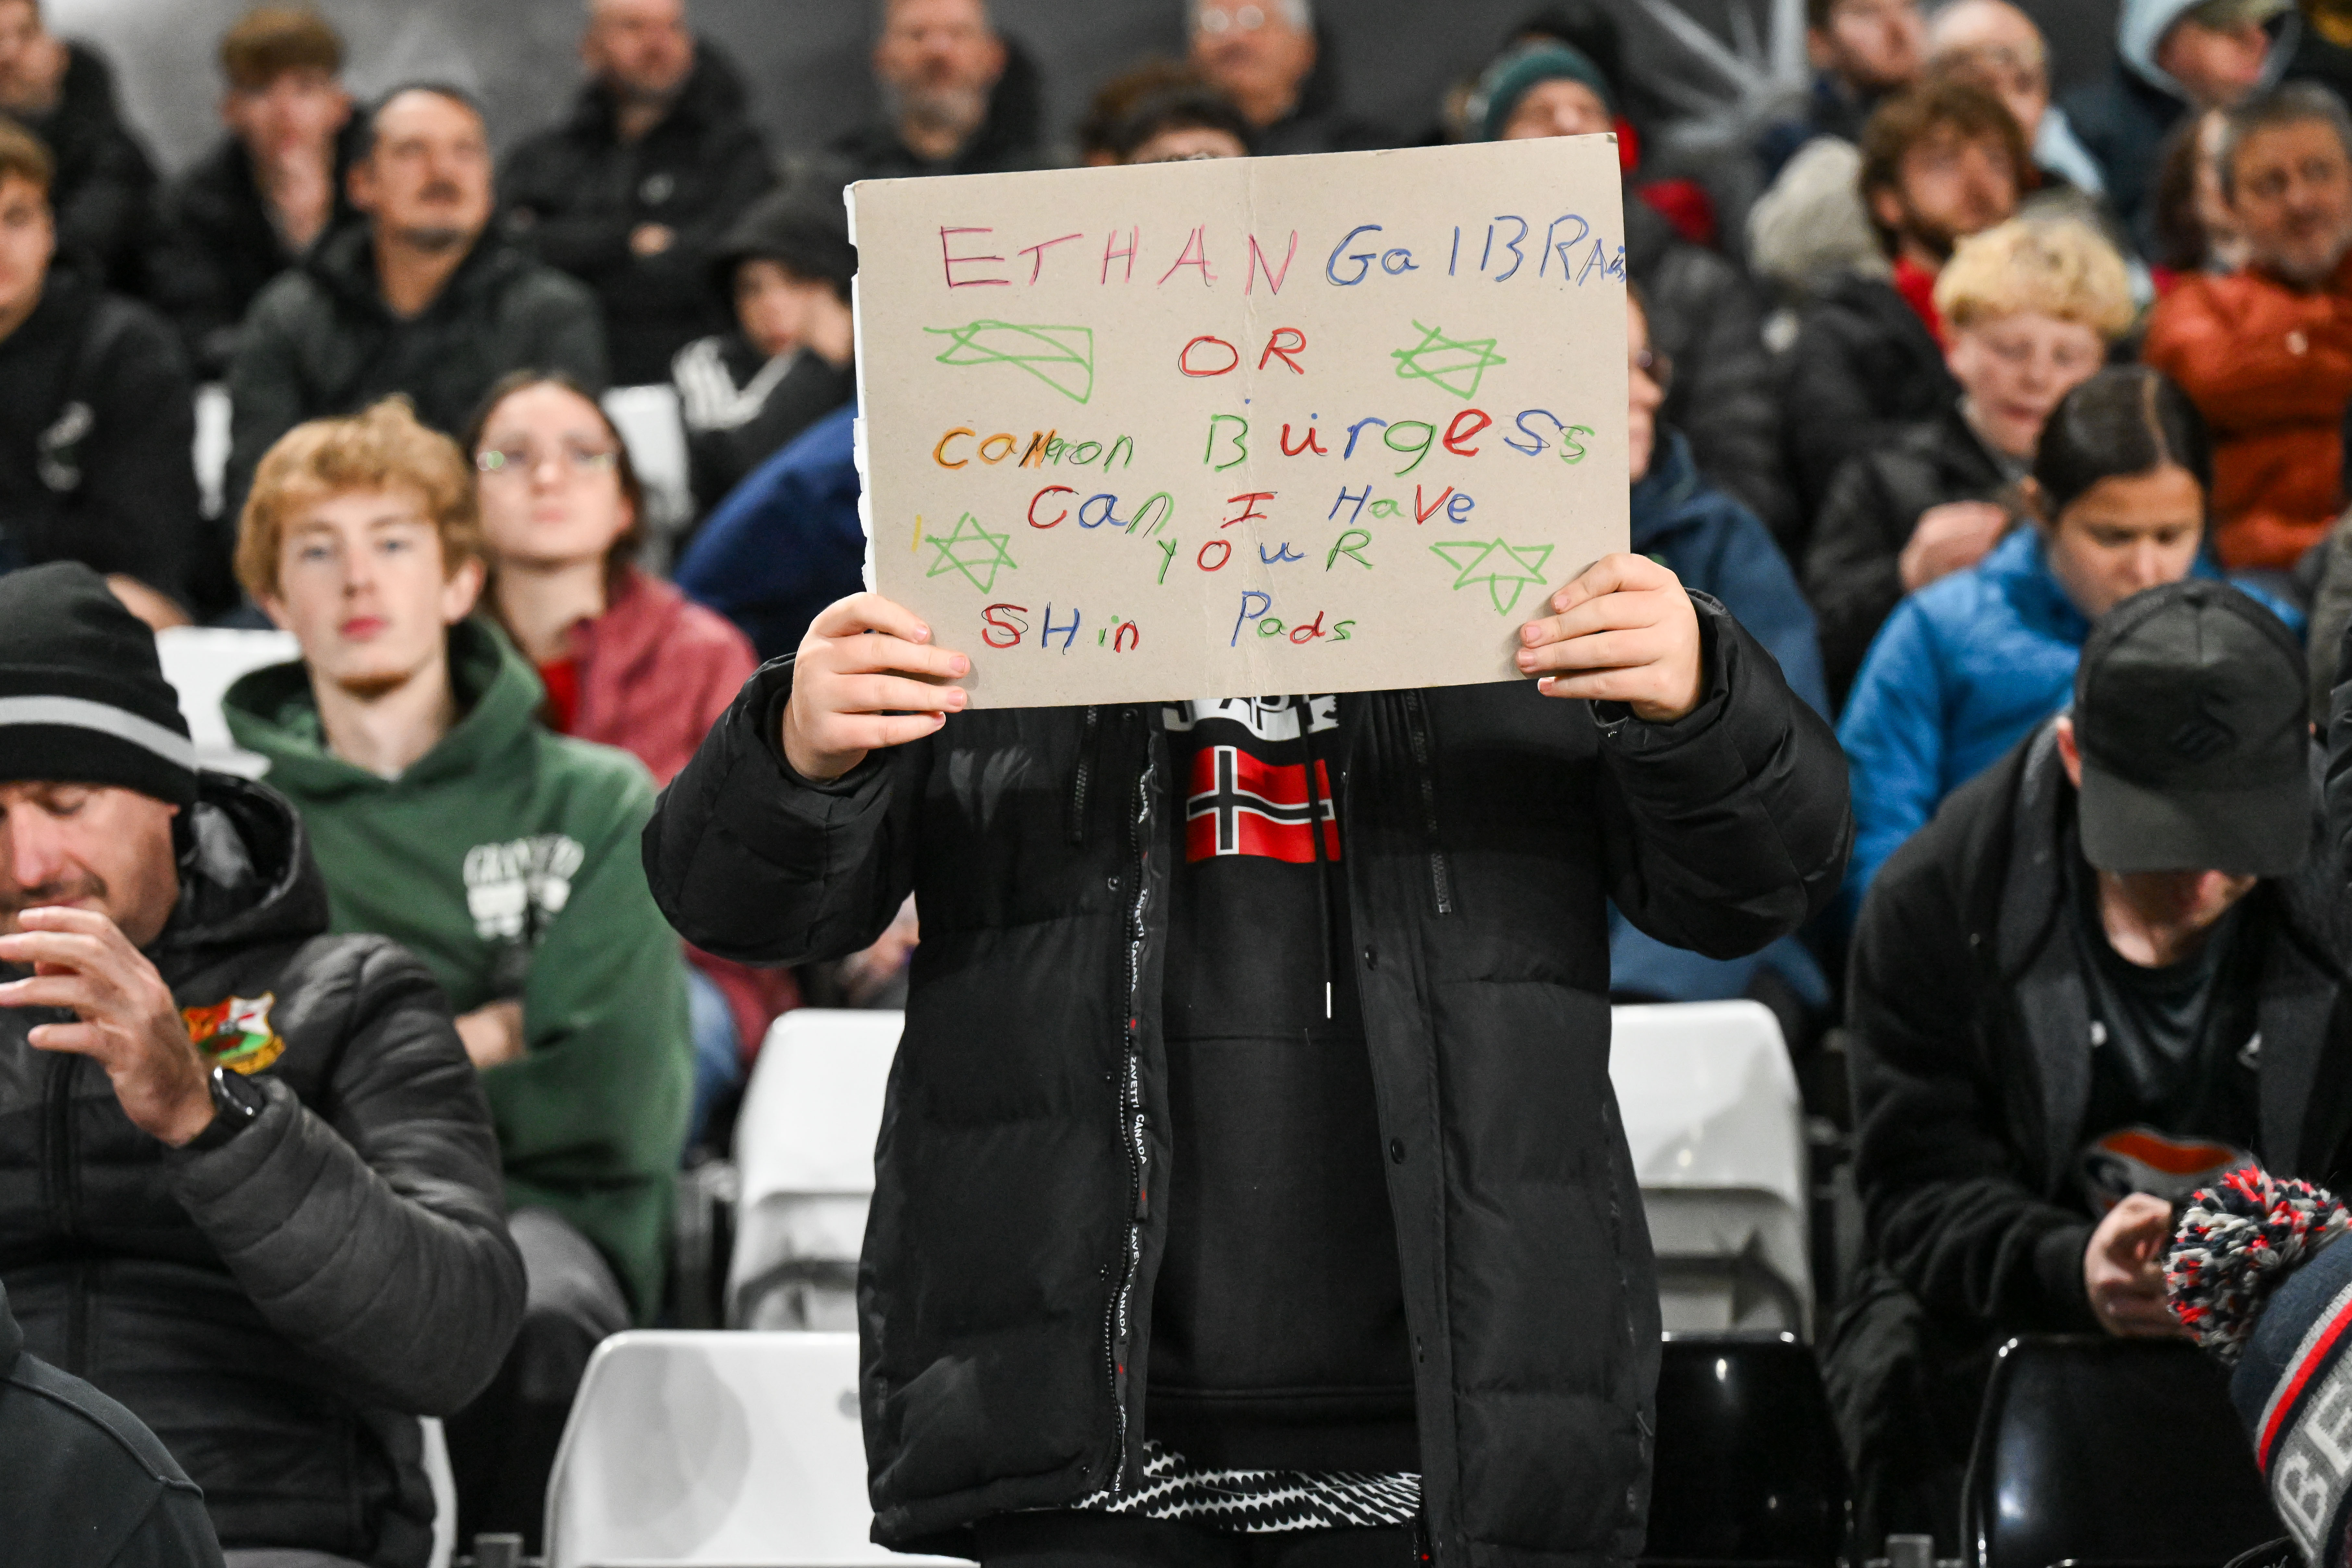 ETHAN GalBRAi
OR
Cameron Burgess
Can I Have
YOuR
SHin Pads
ZAVETTI CANADA
ZAVETTI CANADA
ZAVETTI CANADA
BE